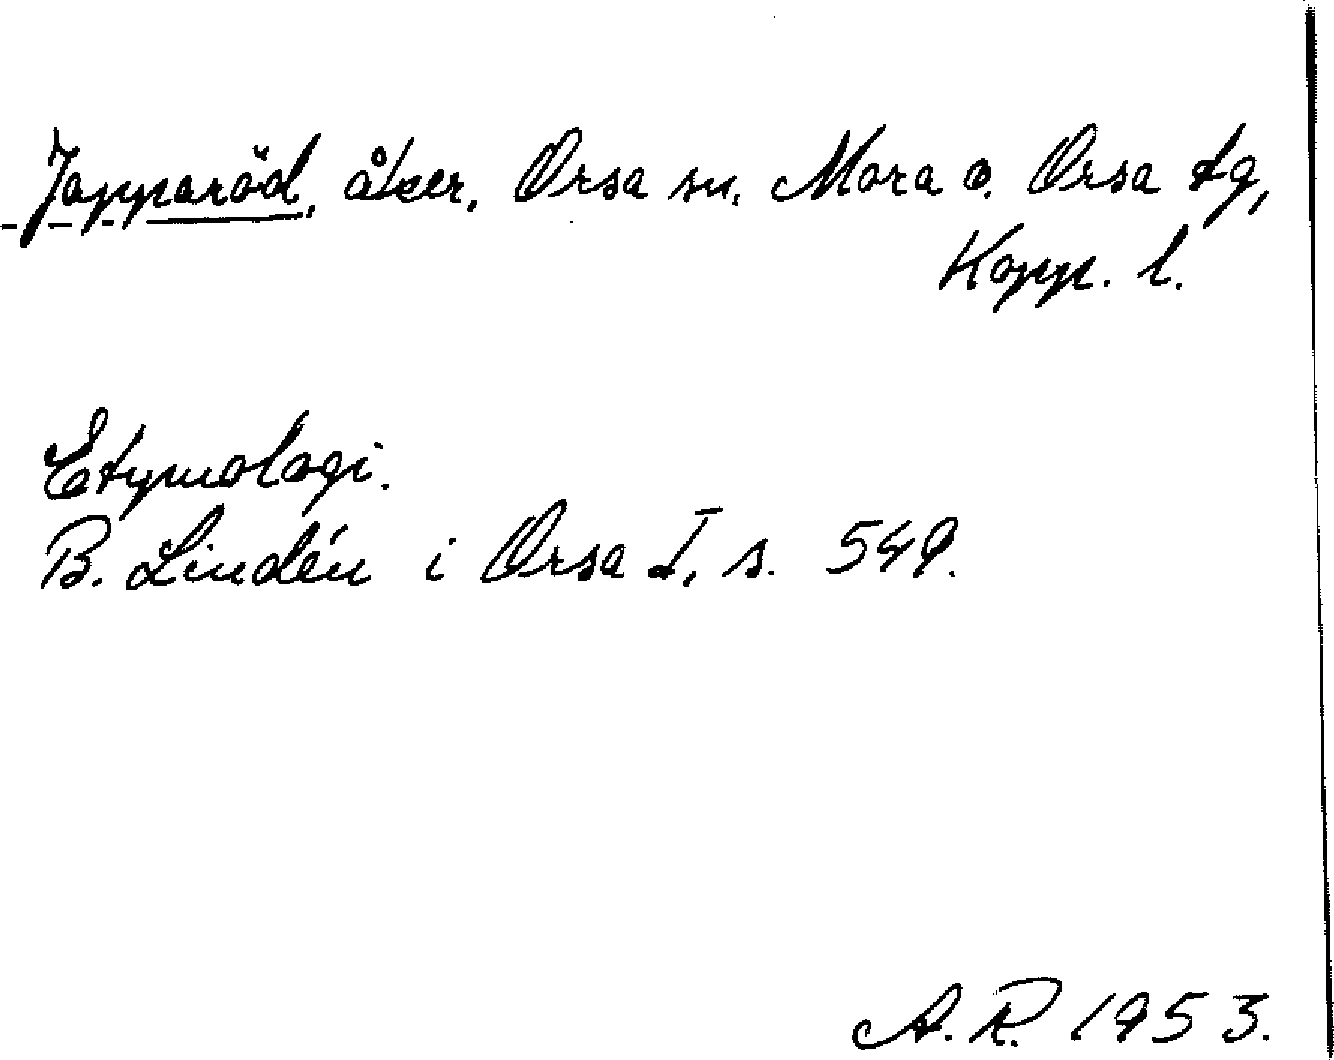 Japparöd, åker, Orsa sn, Mora o. Orsa tg,
Kopp. l.
Etymologi.
B. Lindén i Orsa I, s. 549.
A. R. 1953.